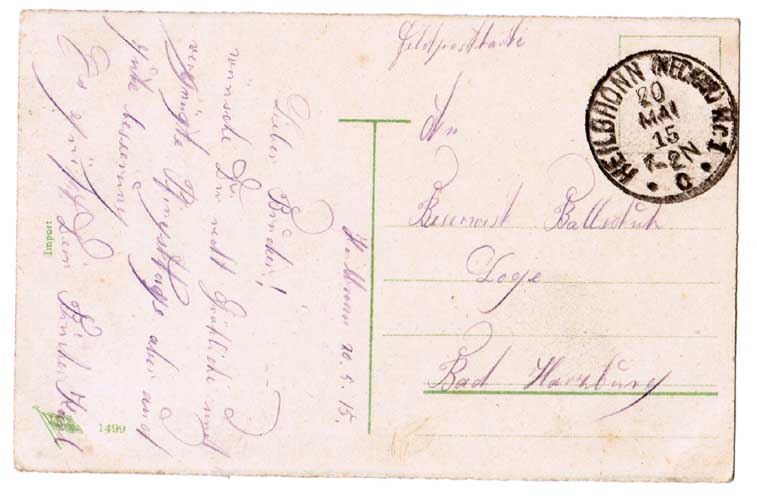 Feldpostkarte
HEILBRONN (NECKAR) Nr. 1
20
MAI
15
1-2N
An
Ballstuk
Loge
Bad Hamburg
Heilbronn 20.5.15.
Lieber Bruder!
wünsche Dir recht fröhliche und
vergnügte Pfingsttage aber auch
gute besserung.
Es grüßt Dein Bruder Karl
Import
1499